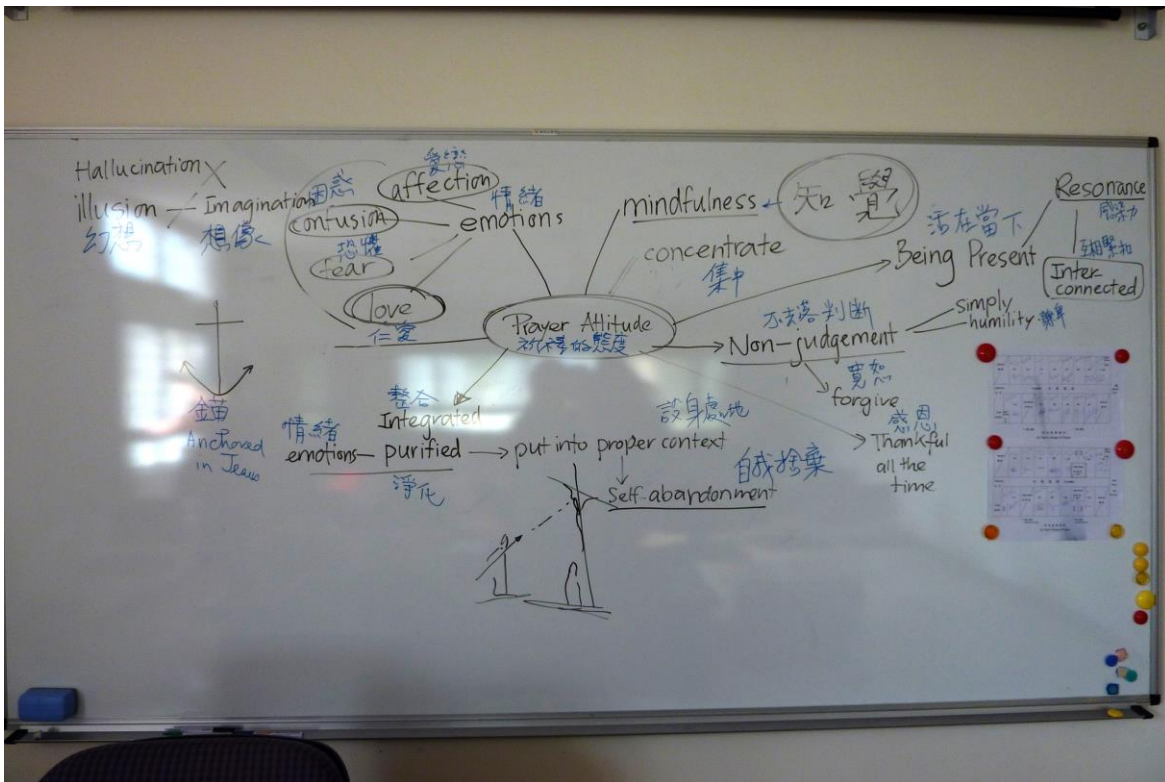 Hallucination
illusion — Imagination
幻想 想像
困惑
愛戀
affection
confusion
恐懼
fear
love
仁愛
情緒
emotions
mindfulness
知覺
concentrate
集中
活在當下
Being Present
Resonance
感染力
互相緊扣
Inter
connected
Prayer Attitude
祈禱的態度
判斷
Non-judgement
simply
humility
寬恕
forgive
感恩
Thankful
all the
time
錨
Anchored
in Jesus
整合
Integrated
情緒
emotions — purified
淨化
設身處地
put into proper context
自我捨棄
Self-abandonment